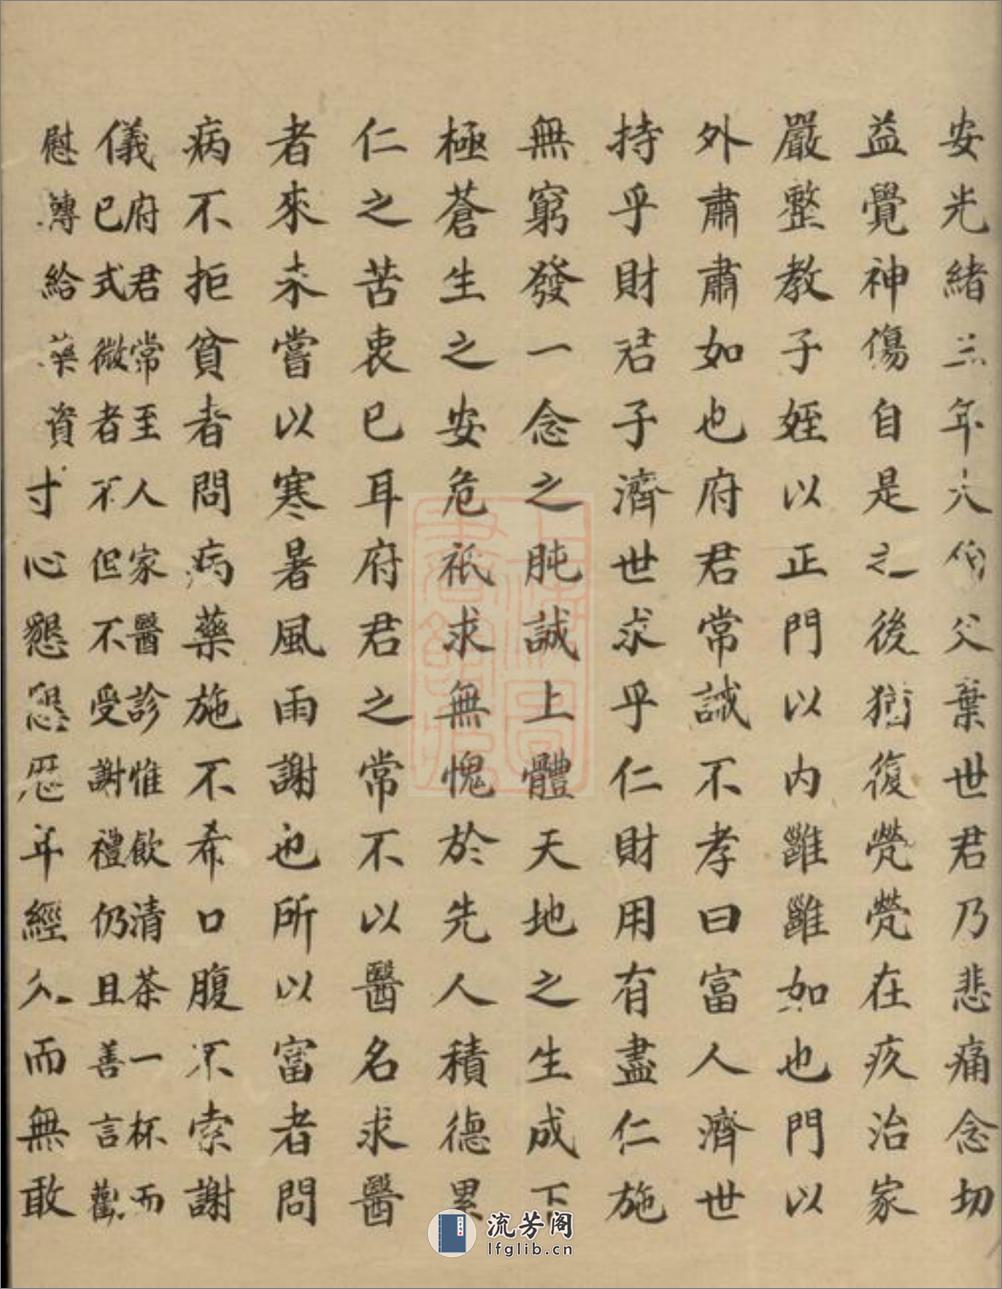 安光緒三年大伯父棄世君乃悲痛念切
益覺神傷自是之後猶復煢煢在疚治家
嚴整教子姪以正門以內雝雝如也門以
外肅肅如也府君常誡不孝曰富人濟世
持乎財君子濟世求乎仁財用有盡仁施
無窮發一念之肫誠上體天地之生成下
極蒼生之安危祇求無愧於先人積德累
仁之苦衷已耳府君之常不以醫名求醫
者來未嘗以寒暑風雨謝也所以富者問
病不拒貧者問病藥施不希口腹不索謝
儀
府君常至人家醫診惟飲清茶一杯而
已式微者不但不受謝禮仍且善言勸
慰轉給藥資
寸心懇懇歷年經久而無敢
流芳阁
lfglib.cn